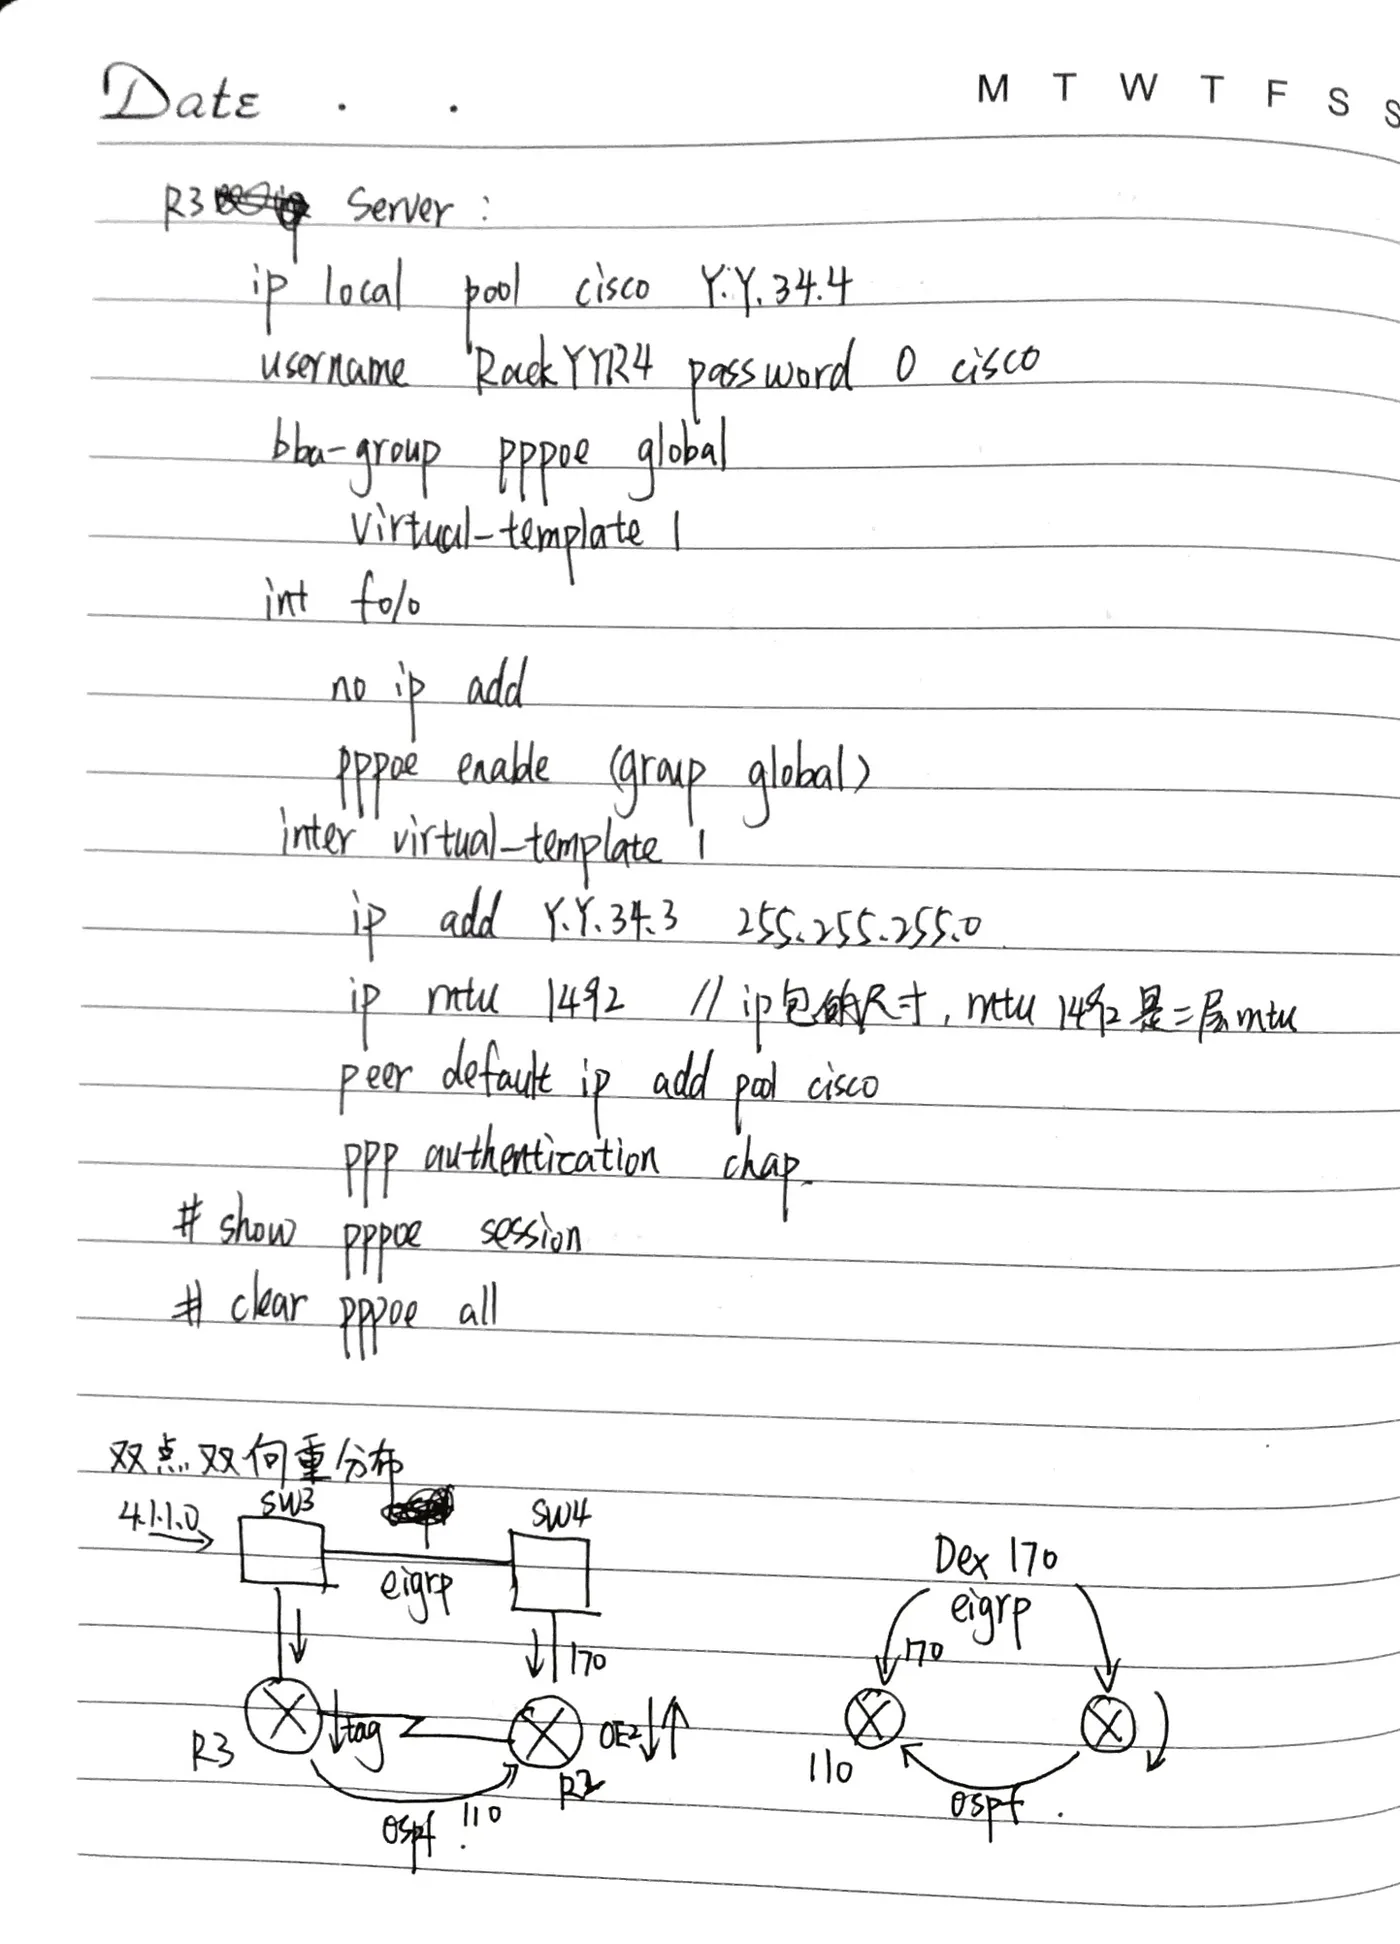 Date . .
M T W T F S S
R3 Server :
ip local pool cisco Y.Y.34.4
username RackYYR4 password 0 cisco
bba-group pppoe global
virtual-template 1
int f0/0
no ip add
pppoe enable (group global)
inter virtual-template 1
ip add Y.Y.34.3 255.255.255.0
ip mtu 1492 // ip包的尺寸, mtu 1492是二层mtu
peer default ip add pool cisco
ppp authentication chap
# show pppoe session
# clear pppoe all
双点双向重分布
4.1.1.0 SW3 SW4
eigrp
170
R3 tag R2 OE2
ospf 110
Dex 170
eigrp
170
110
ospf